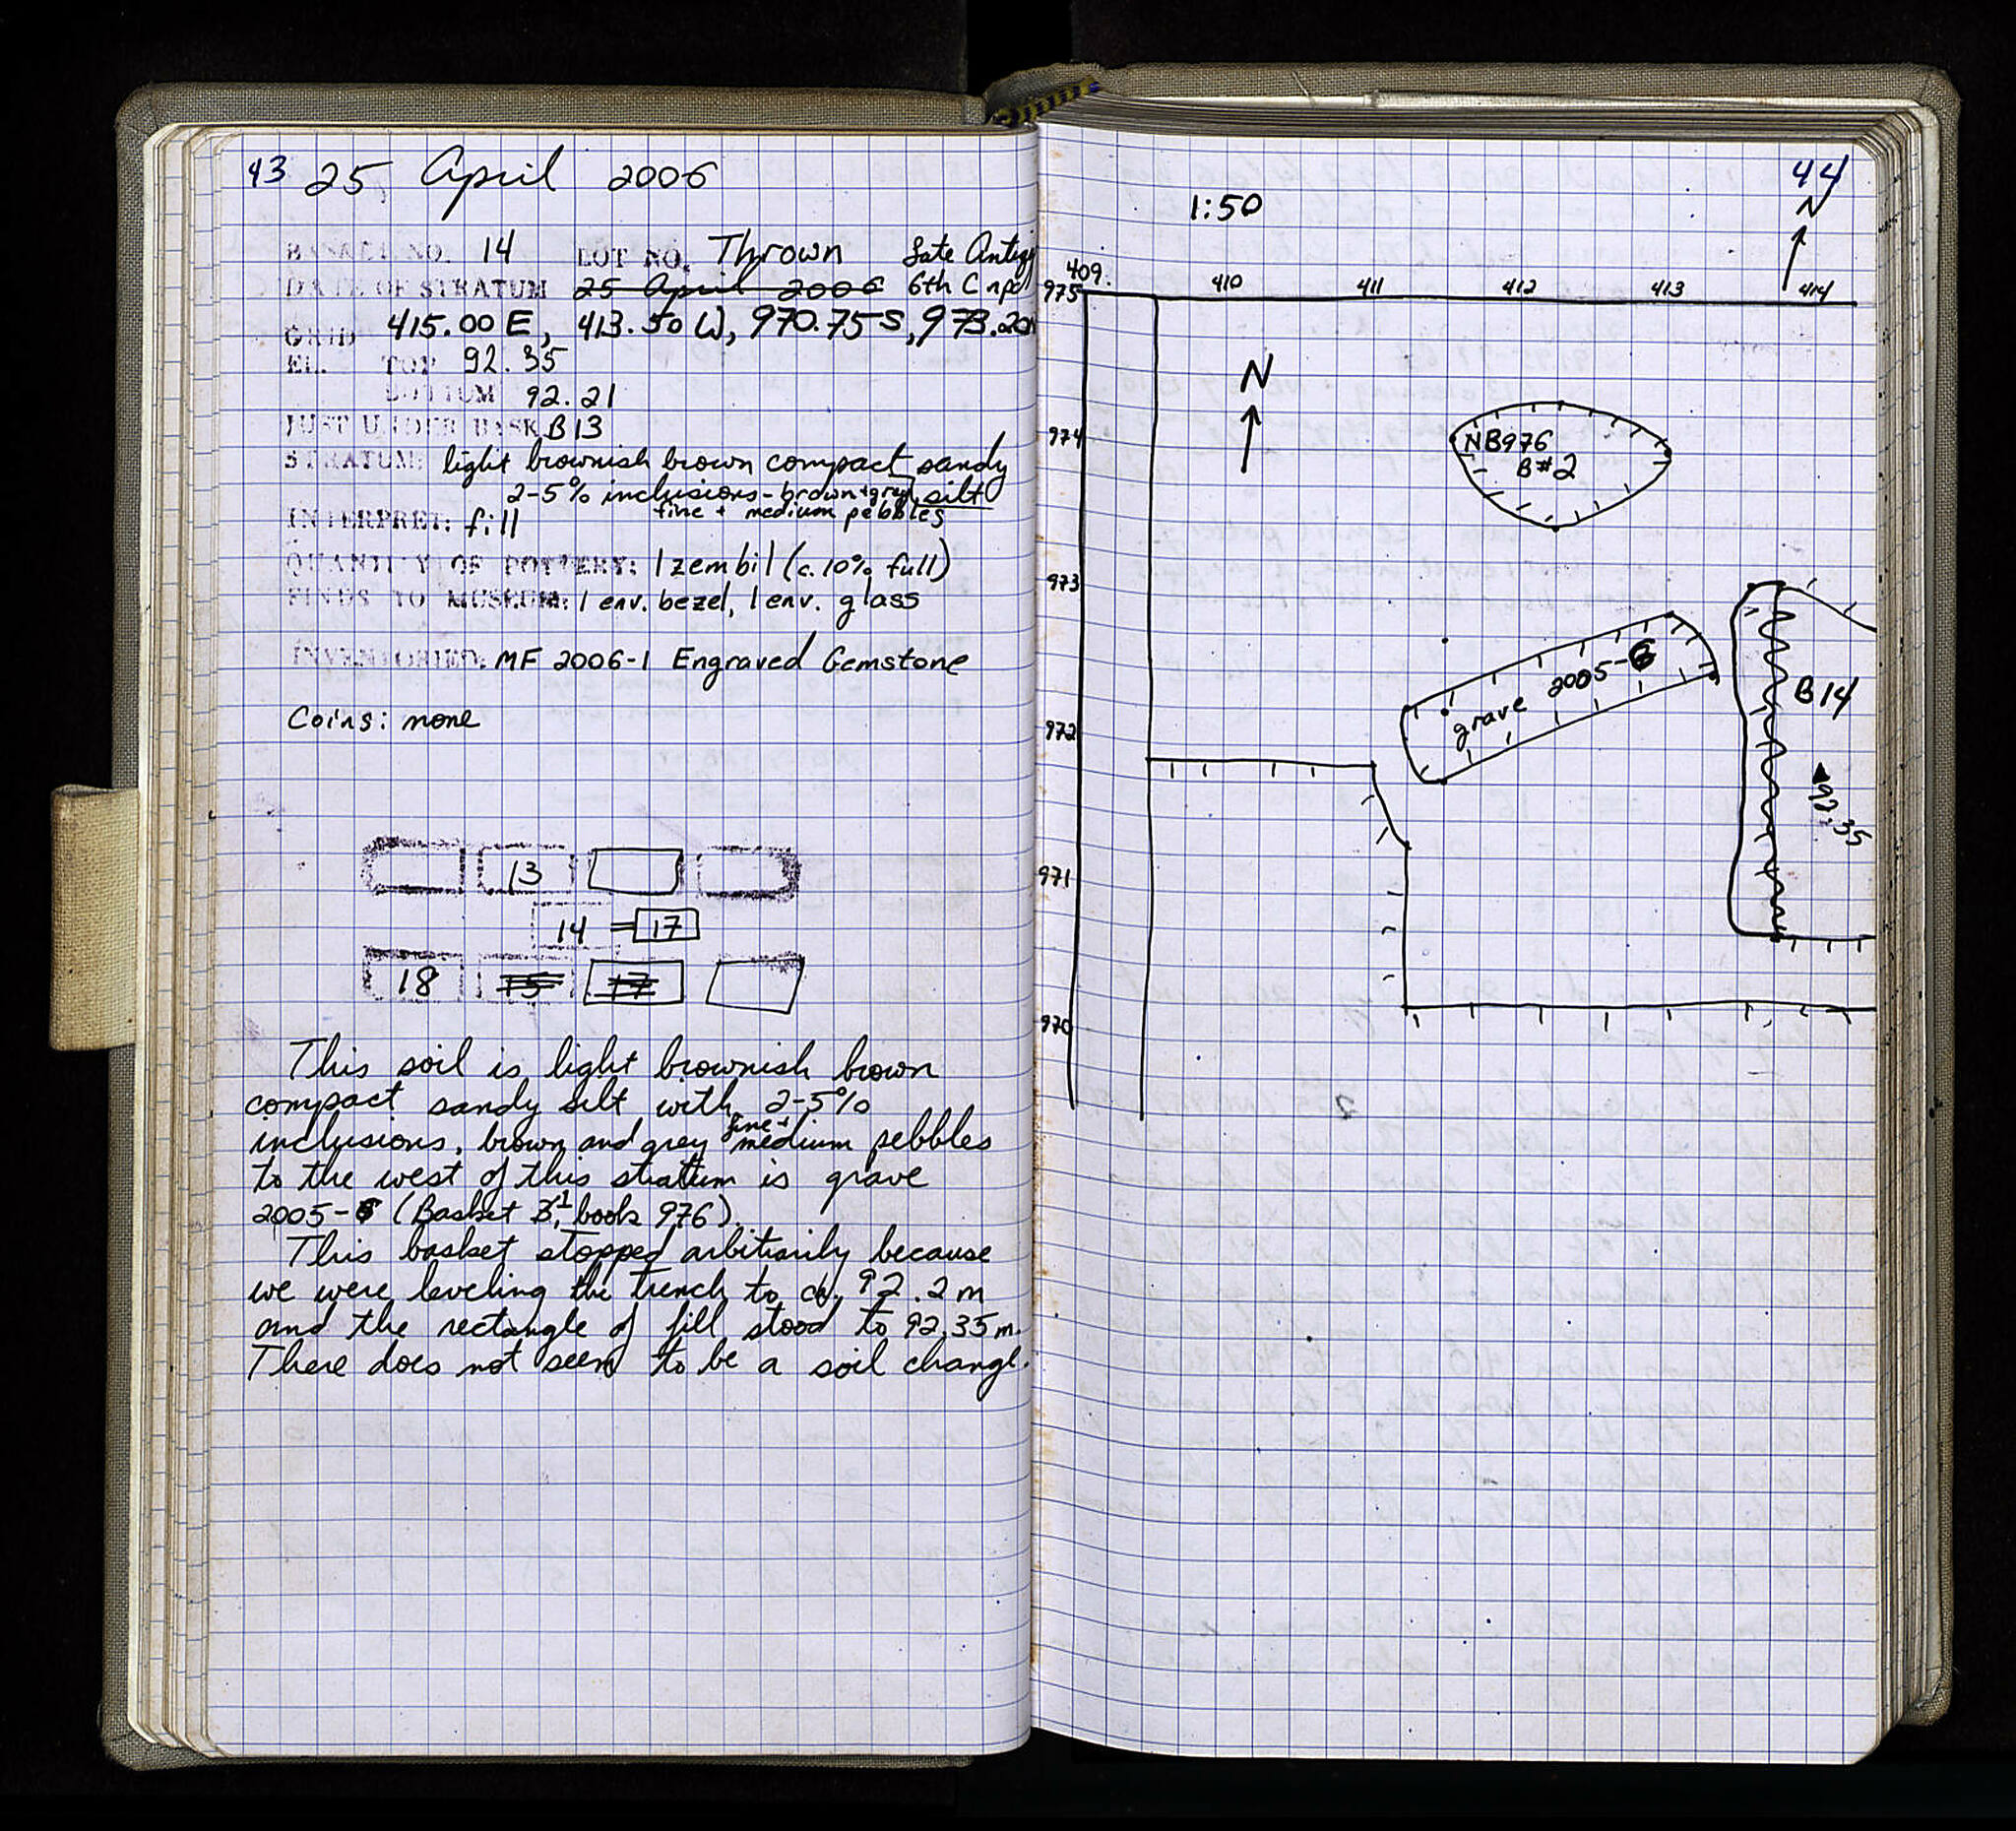 43 25 April 2006
BASKET NO. 14 LOT NO. Thrown Late Antiq
DATE OF STRATUM 25 April 2006 6th C npd
GRID 415.00 E, 413.50 W, 970.75 S, 973.20
EL. TOP 92.35
BOTTOM 92.21
JUST UNDER BASK B13
STRATUM: light brownish brown compact sandy
2-5% inclusions - brown + grey silt
fine + medium pebbles
INTERPRET: fill
QUANTITY OF POTTERY: 1 zembil (c. 10% full)
FINDS TO MUSEUM: 1 env. bezel, 1 env. glass
INVENTORIED: MF 2006-1 Engraved Gemstone
Coins: none
13
14 = 17
18 15 17
This soil is light brownish brown
compact sandy silt with 2-5%
inclusions, brown and grey fine + medium pebbles
to the west of this stratum is grave
2005- (Basket 3,1 book 976).
This basket stopped arbitrarily because
we were leveling the trench to 92.2m
and the rectangle of fill stood to 92.35m.
There does not seem to be a soil change.
44
1:50
N
409
975 410 411 412 413 414
N
974
NB976
B#2
973
grave 2005-6
B14
972
92.35
971
970